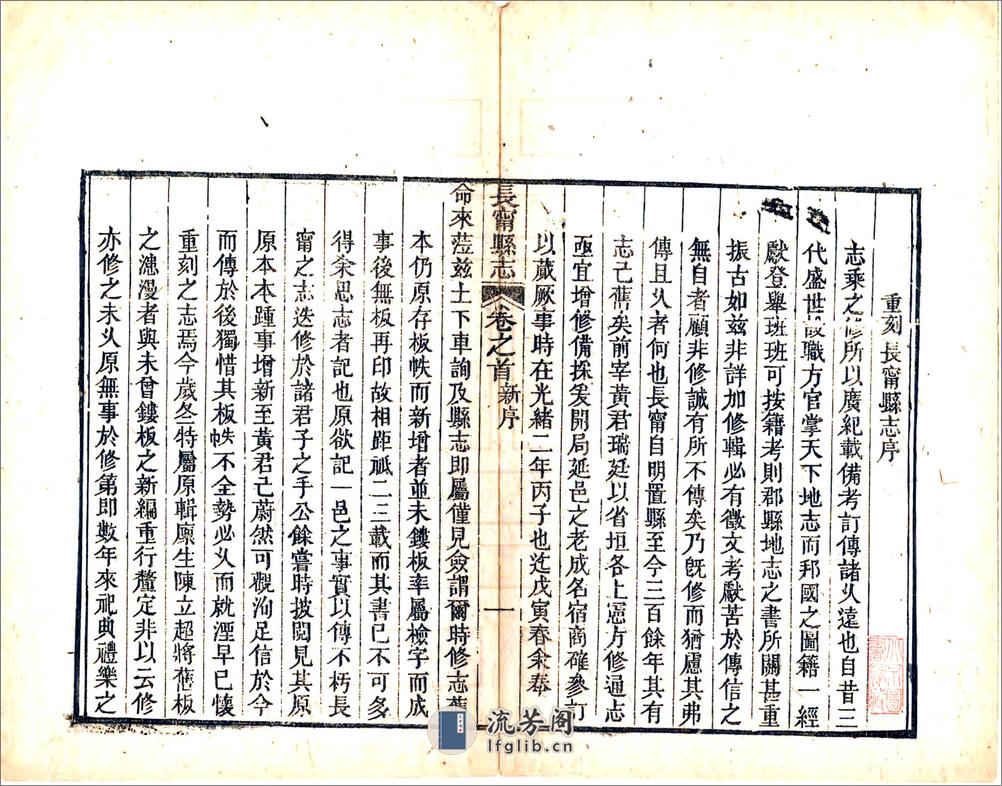 重刻長甯縣志序
志乘之修所以廣紀載備考訂傳諸久遠也自昔三
代盛世設職方官掌天下地志而邦國之圖籍一經
獻登舉班班可按籍考則郡縣地志之書所關甚重
振古如茲非詳加修輯必有徵文考獻苦於傳信之
無自者顧非修誠有所不傳矣乃旣修而猶慮其弗
傳且久者何也長甯自明置縣至今三百餘年其有
志已舊矣前宰黃君瑞廷以省垣各上憲方修通志
亟宜增修備採爰開局延邑之老成名宿商確參訂
以蕆厥事時在光緒二年丙子也迄戊寅春余奉
長甯縣志 卷之首 新序 一
命來蒞茲土下車詢及縣志即屬僅見僉謂爾時修志舊
本仍原存板帙而新增者並未鏤板率屬檢字而成
事後無板再印故相距祗二三載而其書已不可多
得余思志者記也原欲記一邑之事實以傳不朽長
甯之志迭修於諸君子之手公餘嘗時披閱見其原
原本本踵事增新至黃君已蔚然可觀洵足信於今
而傳於後獨惜其板帙不全勢必久而就湮早已懷
重刻之志焉今歲冬特屬原輯廩生陳立超將舊板
之漶漫者與未曾鏤板之新編重行釐定非以云修
亦修之未久原無事於修第即數年來祀典禮樂之
流芳阁
lfglib.cn